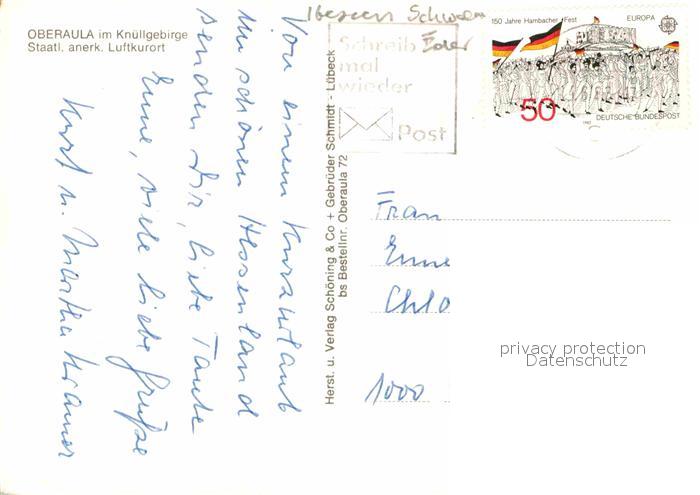 OBERAULA im Knüllgebirge
Staatl. anerk. Luftkurort
Von einem Kurzurlaub
im schönen Hessenland
senden dir, liebe Tante
Enne, viele liebe Grüße
Kurt u. Martha Kramer
Herst. u. Verlag Schöning & Co + Gebrüder Schmidt - Lübeck
bs Bestellnr. Oberaula 72
Schreib
mal
wieder
Post
150 Jahre Hambacher Fest
EUROPA
50
1982
DEUTSCHE BUNDESPOST
Frau
Enne
Chlo
1000
privacy protection
Datenschutz